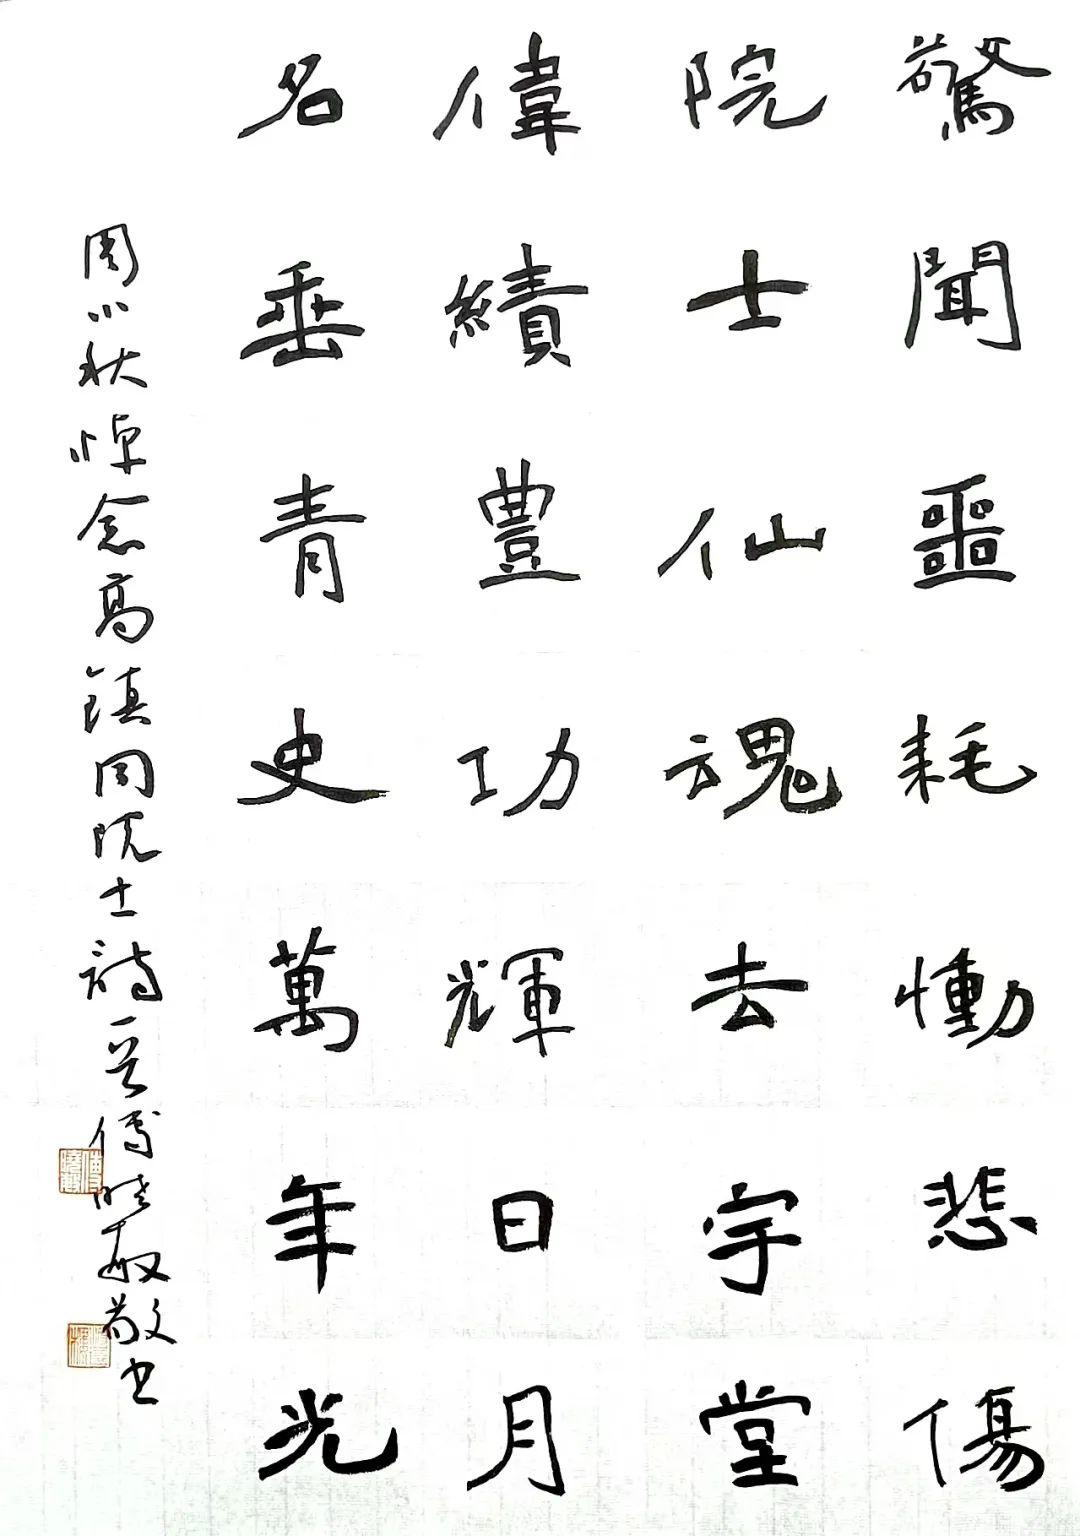 驚聞噩耗慟悲傷
院士仙魂去宇堂
偉績豐功輝日月
名垂青史萬年光
周小秋悼念高鎮同院士詩一首傅曉敏敬书